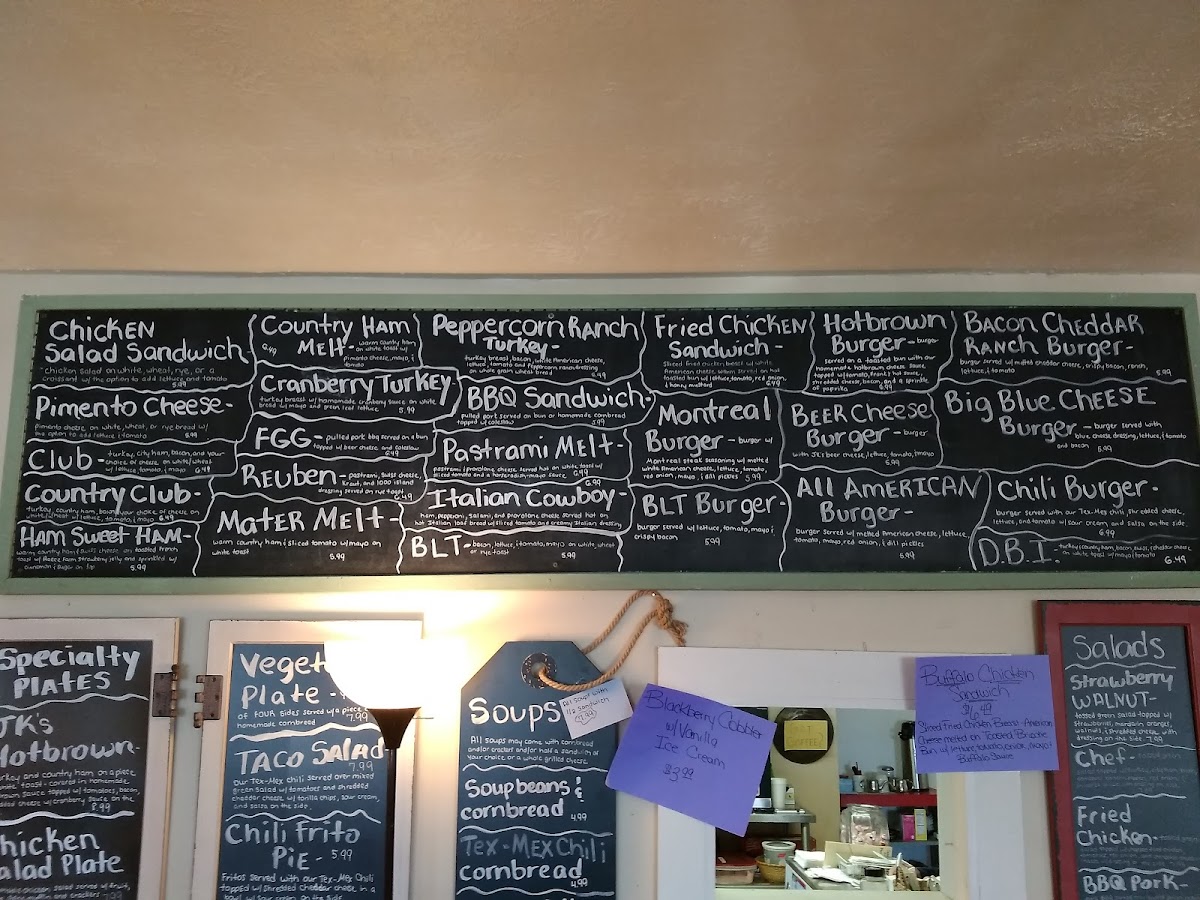 Chicken
Salad Sandwich
chicken salad on white, wheat, rye, or a
croissant w/ the option to add lettuce and tomato
5.99
Pimento Cheese-
pimento cheese, on white, wheat, or rye bread w/
the option to add lettuce & tomato 5.99
Club - turkey, city ham, bacon, and your
choice of cheese on white/wheat
w/ lettuce, tomato, & mayo 6.49
Country Club-
turkey, country ham, bacon, your choice of cheese on
white/wheat w/ lettuce, tomato, & mayo 6.49
Ham Sweet Ham-
warm country ham & swiss cheese on toasted french
toast w/ strawberry jelly and sprinkled w/
cinnamon & sugar on top 5.99
Country Ham
Melt - warm country ham
6.49 on white toast w/
pimento cheese, mayo, &
tomato
Cranberry Turkey-
turkey breast w/ homemade cranberry sauce on white
bread w/ mayo and green leaf lettuce 5.99
FGG - pulled pork bbq served on a bun
topped w/ beer cheese and coleslaw
6.49
Reuben - pastrami, swiss cheese,
kraut, and 1000 island
dressing served on rye toast
6.49
Mater Melt -
warm country ham & sliced tomato w/ mayo on
white toast 5.99
Peppercorn Ranch
Turkey -
turkey breast, bacon, white American cheese,
lettuce, tomato and Peppercorn ranch dressing
on whole grain wheat bread 6.49
BBQ Sandwich-
pulled pork served on bun or homemade cornbread
topped w/ coleslaw 5.99
Pastrami Melt -
pastrami & provolone cheese served hot on white toast w/
sliced tomato and a horseradish-mayo sauce 6.49
Italian Cowboy -
6.99
ham, pepperoni, salami, and provolone cheese served hot on
hot Italian loaf bread w/ sliced tomato and creamy Italian dressing
BLT - bacon, lettuce, & tomato, mayo on white, wheat
or rye toast 5.99
Fried Chicken
Sandwich -
sliced fried chicken breast w/ white
American cheese, served on hot
toasted bun w/ lettuce, tomato, red onion,
& honey mustard 6.49
Montreal
Burger - burger w/
Montreal steak seasoning w/ melted
white American cheese, lettuce, tomato,
red onion, mayo, & dill pickles 5.99
BLT Burger -
burger served w/ lettuce, tomato, mayo, &
crispy bacon 5.99
Hotbrown
Burger - burger
served on a toasted bun with our
homemade hotbrown cheese sauce
topped w/ tomato, Frank's hot sauce,
shredded cheese, bacon, and a sprinkle
of paprika 6.99
Beer Cheese
Burger - burger
with JK's beer cheese, lettuce, & tomato
5.99
All American
Burger -
burger served w/ melted American cheese, lettuce,
tomato, mayo, red onion, & dill pickles
5.99
Bacon Cheddar
Ranch Burger -
burger served w/ melted cheddar cheese, crispy bacon, ranch,
lettuce, & tomato 5.99
Big Blue Cheese
Burger - burger served with
blue cheese, dressing, lettuce, & tomato
and bacon
5.99
Chili Burger -
burger served with our Tex-Mex chili, shredded cheese,
lettuce, and tomato w/ sour cream and salsa on the side.
6.99
D.B.I. - turkey, country ham, bacon, swiss, & cheddar cheese,
on white toast w/ mayo & tomato
6.49
Specialty
Plates
JK's
Hotbrown-
turkey and country ham on a piece
white toast - covered in homemade
brown sauce topped w/ tomatoes, bacon,
added cheese w/ cranberry sauce on the
8.99
Chicken
Salad Plate
Veget
Plate -
7.99
of FOUR sides served w/ a piece
homemade cornbread
Taco Salad
7.99
our Tex-Mex chili served over mixed
green salad w/ tomatoes and shredded
cheddar cheese w/ tortilla chips, sour cream,
and salsa on the side.
Chili Frito
Pie - 5.99
Fritos served with our Tex-Mex Chili
topped w/ shredded cheddar cheese in a
bowl w/ sour cream on the side
Soups
All soups may come with cornbread
and/or crackers and/or half a sandwich of
your choice or a whole grilled cheese.
Soup beans &
cornbread 4.99
Tex-Mex Chili
cornbread
4.99
All soup with
1/2 sandwich
$7.99
Blackberry Cobbler
w/ Vanilla
Ice Cream
$3.99
Buffalo Chicken
Sandwich
$6.49
Sliced Fried Chicken Breast w/ American
Cheese melted on Toasted Brioche
Bun w/ lettuce, tomato, onion, mayo &
Buffalo Sauce
Salads
Strawberry
Walnut-
tossed green salad topped w/
strawberries, mandarin orange,
walnuts, & shredded cheese with
dressing on the side. 7.99
Chef-
Fried
Chicken-
BBQ Pork-